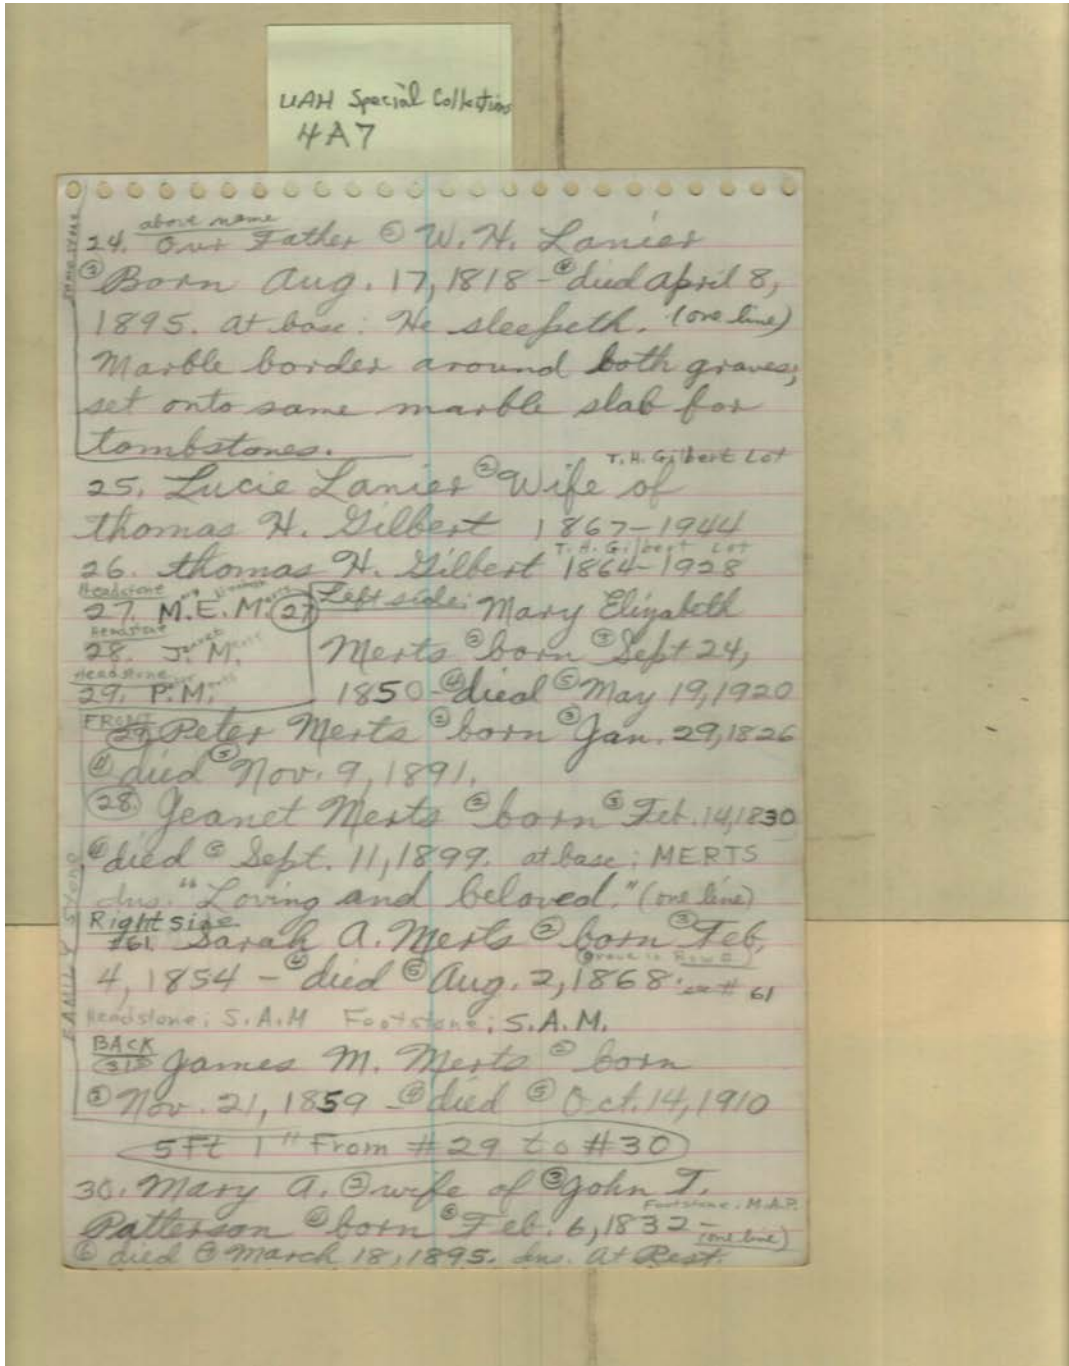 UAH Special Collections
4A7
above name
24. Our Father ② W. H. Lanier
③ Born Aug. 17, 1818 - ④ died April 8,
1895. At base: He sleepeth. (one line)
Marble border around both graves;
set onto same marble slab for
tombstones.
T. H. Gilbert Lot
25. Lucie Lanier ② Wife of
Thomas H. Gilbert 1867-1944
T. H. Gilbert Lot
26. Thomas H. Gilbert 1864-1928
Headstone
27. M.E.M. (27) Left side: Mary Elizabeth
Headstone
28. J. M. Merts ② born ③ Sept 24,
Headstone
29. P. M. 1850 - ④ died ⑤ May 19, 1920
FRONT
(29) Peter Merts ② born ③ Jan. 29, 1826
④ died ⑤ Nov. 9, 1891.
(28.) Jeanet Merts ② born ③ Feb. 14, 1830
④ died ⑤ Sept. 11, 1899. at base: MERTS
Ins. "Loving and beloved." (one line)
FAMILY STONE
Right side
#61 Sarah A. Merts ② born ③ Feb.
4, 1854 - ④ died ⑤ Aug. 2, 1868. see # 61
Headstone: S.A.M Footstone: S.A.M.
BACK
(31) James M. Merts ② born
③ Nov. 21, 1859 - ④ died ⑤ Oct. 14, 1910
5Ft 1" From #29 to #30
30. Mary A. ② wife of ③ John T.
Footstone: M.A.P.
Patterson ④ born ⑤ Feb. 6, 1832 -
(one line)
⑥ died ⑦ March 18, 1895. Ins. At Rest.